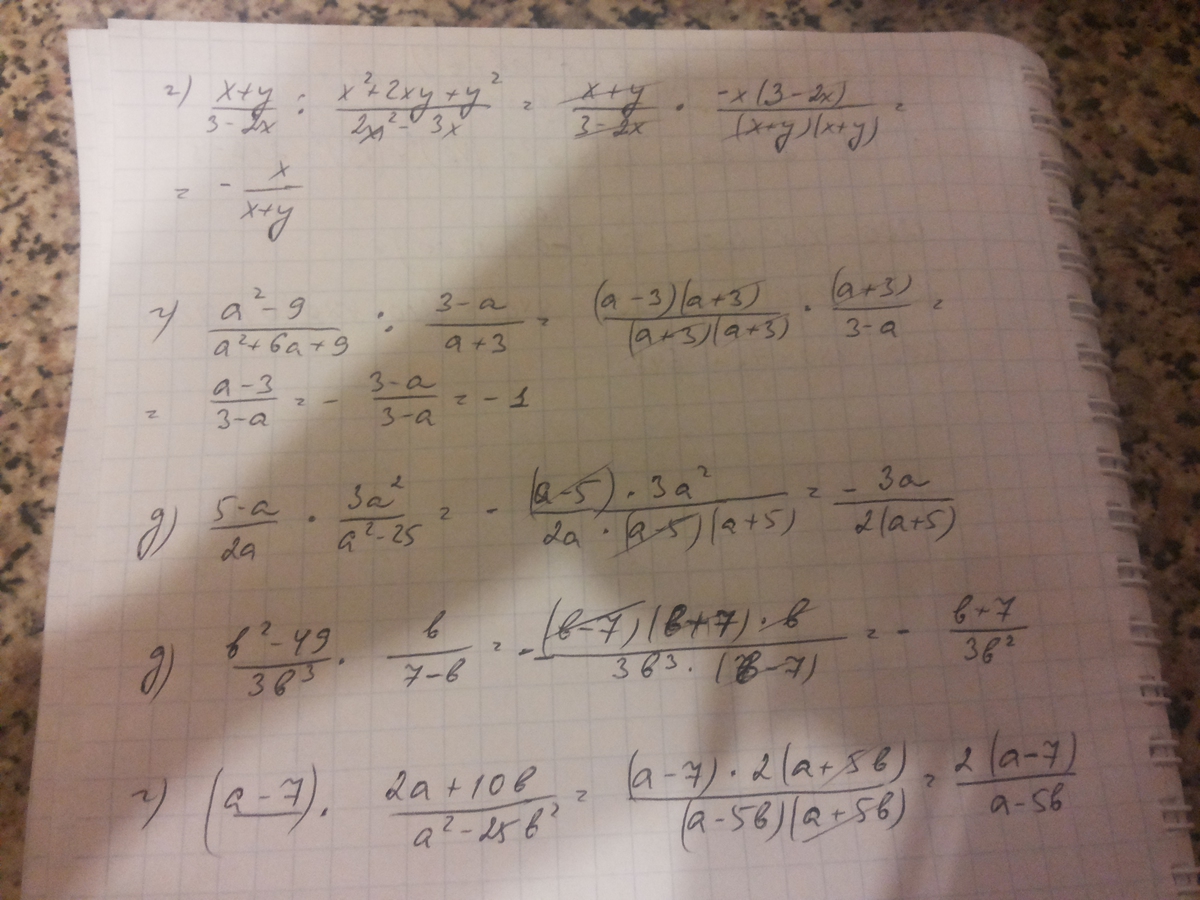 г) (x+y)/(3-2x) : (x²+2xy+y²)/(2x²-3x) = (x+y)/(3-2x) · (-x(3-2x))/((x+y)(x+y)) =
= - x/(x+y)
г) (a²-9)/(a²+6a+9) : (3-a)/(a+3) = ((a-3)(a+3))/((a+3)(a+3)) · (a+3)/(3-a) =
= (a-3)/(3-a) = - (3-a)/(3-a) = -1
д) (5-a)/(2a) · (3a²)/(a²-25) = - ((a-5)·3a²)/(2a·(a-5)(a+5)) = - (3a)/(2(a+5))
д) (в²-49)/(3в³) · в/(7-в) = - ((в-7)(в+7)·в)/(3в³·(в-7)) = - (в+7)/(3в²)
г) (a-7) · (2a+10в)/(a²-25в²) = ((a-7)·2(a+5в))/((a-5в)(a+5в)) = (2(a-7))/(a-5в)